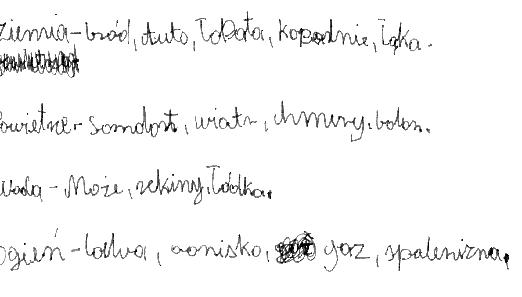 Ziemia - bród, Auto, Łopata, kopalnie, Łąka.
Powietrze - Samolot, wiatr, chmury, balon.
Woda - Może, rekiny, Łódka.
Ogień - Ladva, ognisko, gaz, spalenizna.